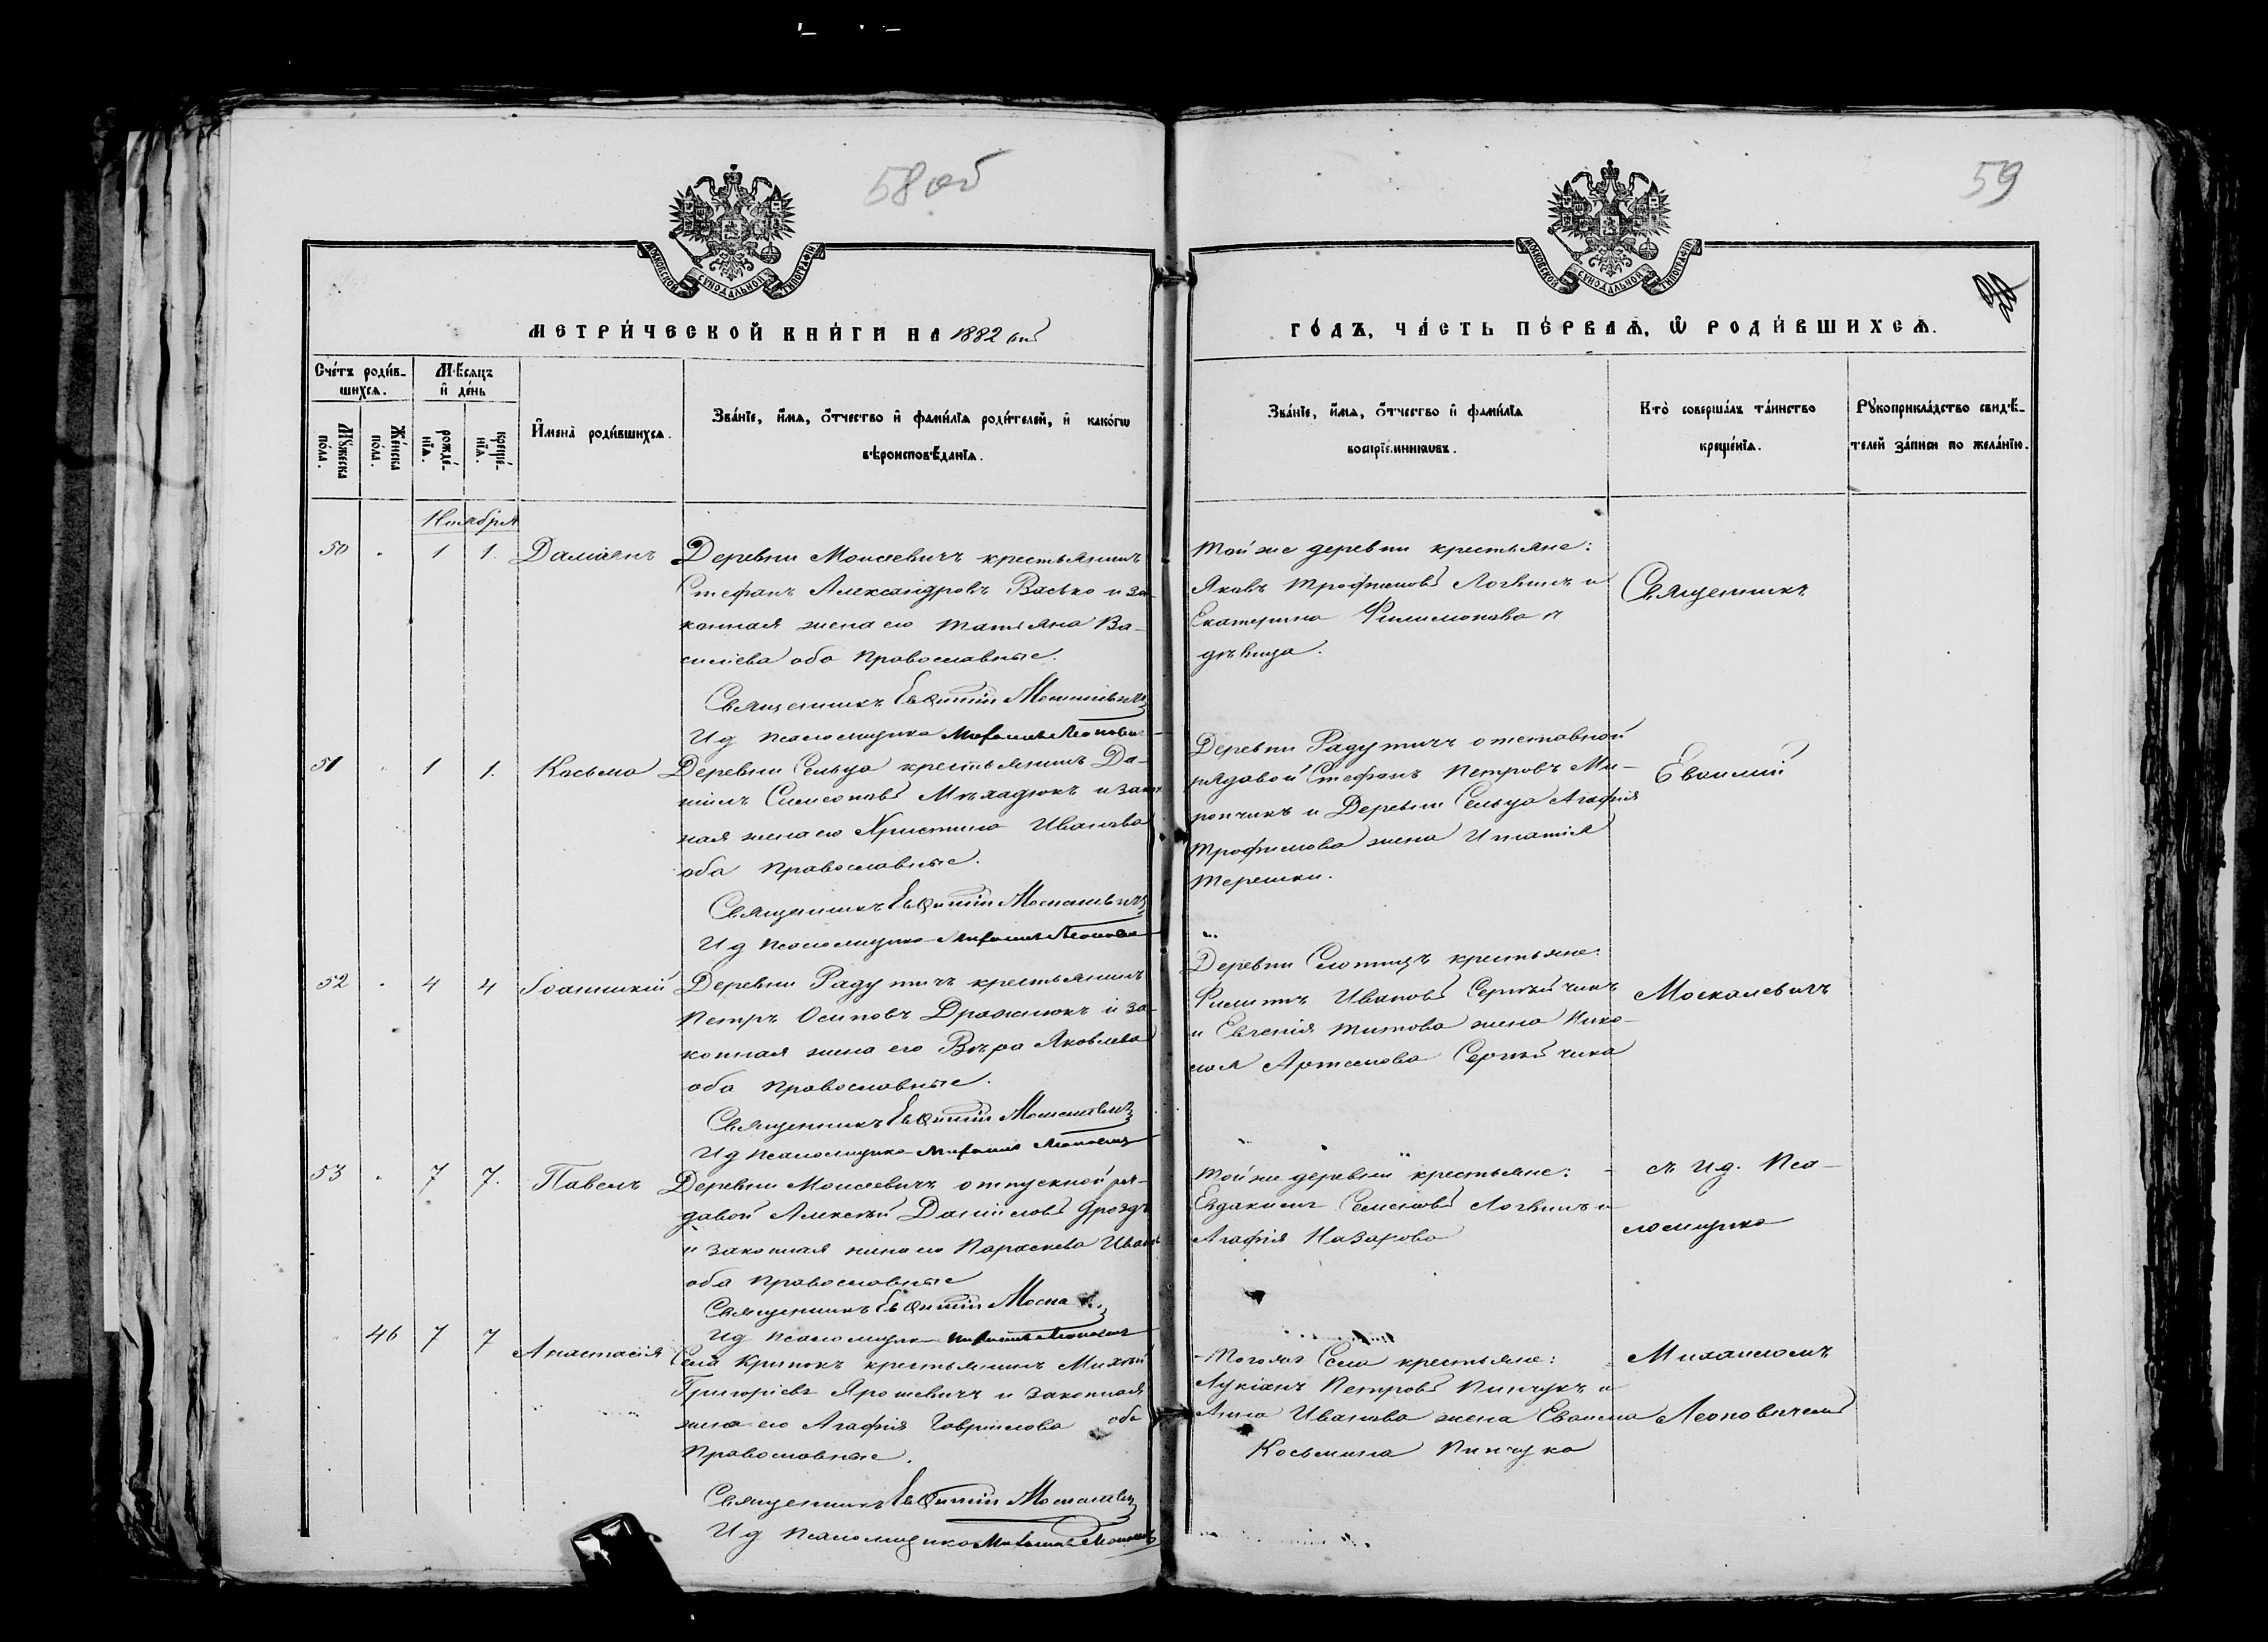 58 об
59
МОСКОВСКОЙ СѴНОДАЛЬНОЙ ТИПОГРАФІИ
МОСКОВСКОЙ СѴНОДАЛЬНОЙ ТИПОГРАФІИ
МЕТРИ́ЧЕСКОЙ КНИ́ГИ НА 1882 
ГО́ДЪ, ЧА́СТЬ ПЕ́РВАѦ, Ѽ РОДИ́ВШИХСѦ.
Сче́тъ роди́в-
шихсѧ.
Мꙋжеска по́ла.
Же́нска по́ла.
Мѣ́сѧцъ
и҆ де́нь
рожде́-
нїѧ.
креще́-
нїѧ.
И҆мена̀ роди́вшихсѧ.
Зва́нїе, и҆́мѧ, о҆́тчество и҆ фами́лїѧ роди́телей, и҆ како́гѡ
вѣроисповѣ́данїѧ.
Зва́нїе, и҆́мѧ, о҆́тчество и҆ фами́лїѧ
воспрїе́мниковъ.
Кто̀ соверша́лъ та́инство
креще́нїѧ.
Рꙋкоприкла́дство свидѣ́-
телей за́писи по жела́нїю.
Ноября
50 1 1. Даміанъ
Деревни Моисеевичъ крестьянинъ
Стефанъ Александровъ Васько и за-
конная жена его Татьяна Ва-
силіева оба Православные.
Священникъ Евѳимій Москалевичъ
И д Псаломщика Михаилъ Леоновичъ
Той же деревни крестьяне:
Яковъ Трофимовъ Логвинъ и
Екатерина Филимонова
дѣвица.
Священникъ
51 1 1. Косьма
Деревни Сельца крестьянинъ Да-
ніилъ Симеоновъ Мѣхадюкъ и закон
ная жена его Христина Иванова
оба Православные.
Священникъ Евѳимій Москалевичъ
И д Псаломщика Михаилъ Леоновичъ
Деревни Радутичъ отставной
рядовой Стефанъ Петровъ Ми-
рончикъ и Деревни Сельца Агафія
Трофимова жена Игнатія
Терешки.
Евѳимій
52 4 4 Іоанникій
Деревни Радутичъ крестьянинъ
Петръ Осиповъ Дражнюкъ и за-
конная жена его Вѣра Яковлева
оба Православные.
Священникъ Евѳимій Москалевичъ
И д Псаломщика Михаилъ Леоновичъ
Деревни Слотицъ крестьяне:
Филиппъ Ивановъ Сергѣйчикъ
и Евгенія Титова жена Нико-
лая Артемова Сергѣйчика
Москалевичъ
53 7 7. Павелъ
Деревни Моисеевичъ отпускной ря-
довой Алексѣй Даніиловъ Дроздъ
и законная жена его Параскева Иван
оба Православные
Священникъ Евѳимій Моска
И д Псаломщика Михаилъ Леоновичъ
Той же деревни крестьяне:
Евдакимъ Семеновъ Логвинъ и
Агафія Назарова
съ И.д. Пса-
ломщика
46 7 7 Анастасія
Села Кринокъ крестьянинъ Михей
Григоріевъ Ярошевичъ и законная
жена его Агафія Гаврилова оба
Православные.
Священникъ Евѳимій Москалевичъ
И д Псаломщика Михаилъ Леоновичъ
Того же Села крестьяне:
Лукіанъ Петровъ Пинчукъ и
Анна Иванова жена Евѳима
Косьмина Пинчука
Михаиломъ
Леоновичемъ